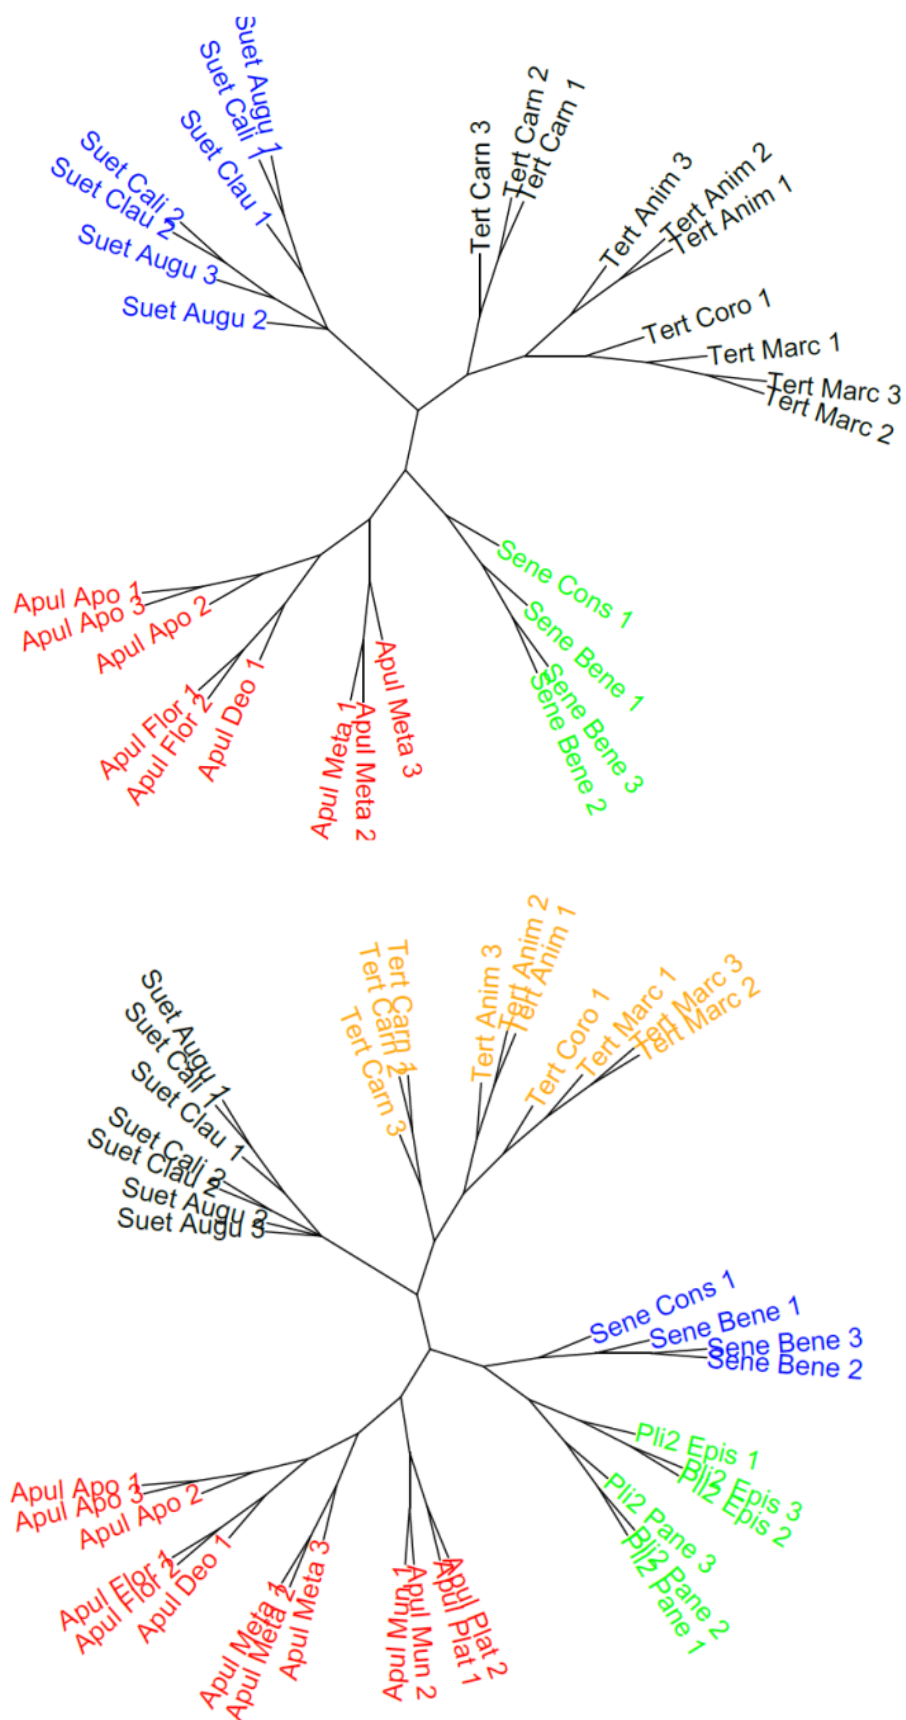 Suet Augu 1
Suet Cali 1
Suet Clau 1
Suet Cali 2
Suet Clau 2
Suet Augu 3
Suet Augu 2
Tert Carn 3
Tert Carn 2
Tert Carn 1
Tert Anim 3
Tert Anim 2
Tert Anim 1
Tert Coro 1
Tert Marc 1
Tert Marc 3
Tert Marc 2
Sene Cons 1
Sene Bene 1
Sene Bene 3
Sene Bene 2
Apul Apo 1
Apul Apo 3
Apul Apo 2
Apul Flor 1
Apul Flor 2
Apul Deo 1
Apul Meta 1
Apul Meta 2
Apul Meta 3
Suet Augu 1
Suet Cali 1
Suet Clau 1
Suet Cali 2
Suet Clau 2
Suet Augu 2
Suet Augu 3
Tert Carn 1
Tert Carn 2
Tert Carn 3
Tert Anim 3
Tert Anim 2
Tert Anim 1
Tert Coro 1
Tert Marc 1
Tert Marc 3
Tert Marc 2
Sene Cons 1
Sene Bene 1
Sene Bene 3
Sene Bene 2
Pli2 Epis 1
Pli2 Epis 3
Pli2 Epis 2
Pli2 Pane 3
Pli2 Pane 2
Pli2 Pane 1
Apul Apo 1
Apul Apo 3
Apul Apo 2
Apul Flor 1
Apul Flor 2
Apul Deo 1
Apul Meta 1
Apul Meta 2
Apul Meta 3
Apul Mun 1
Apul Mun 2
Apul Plat 1
Apul Plat 2